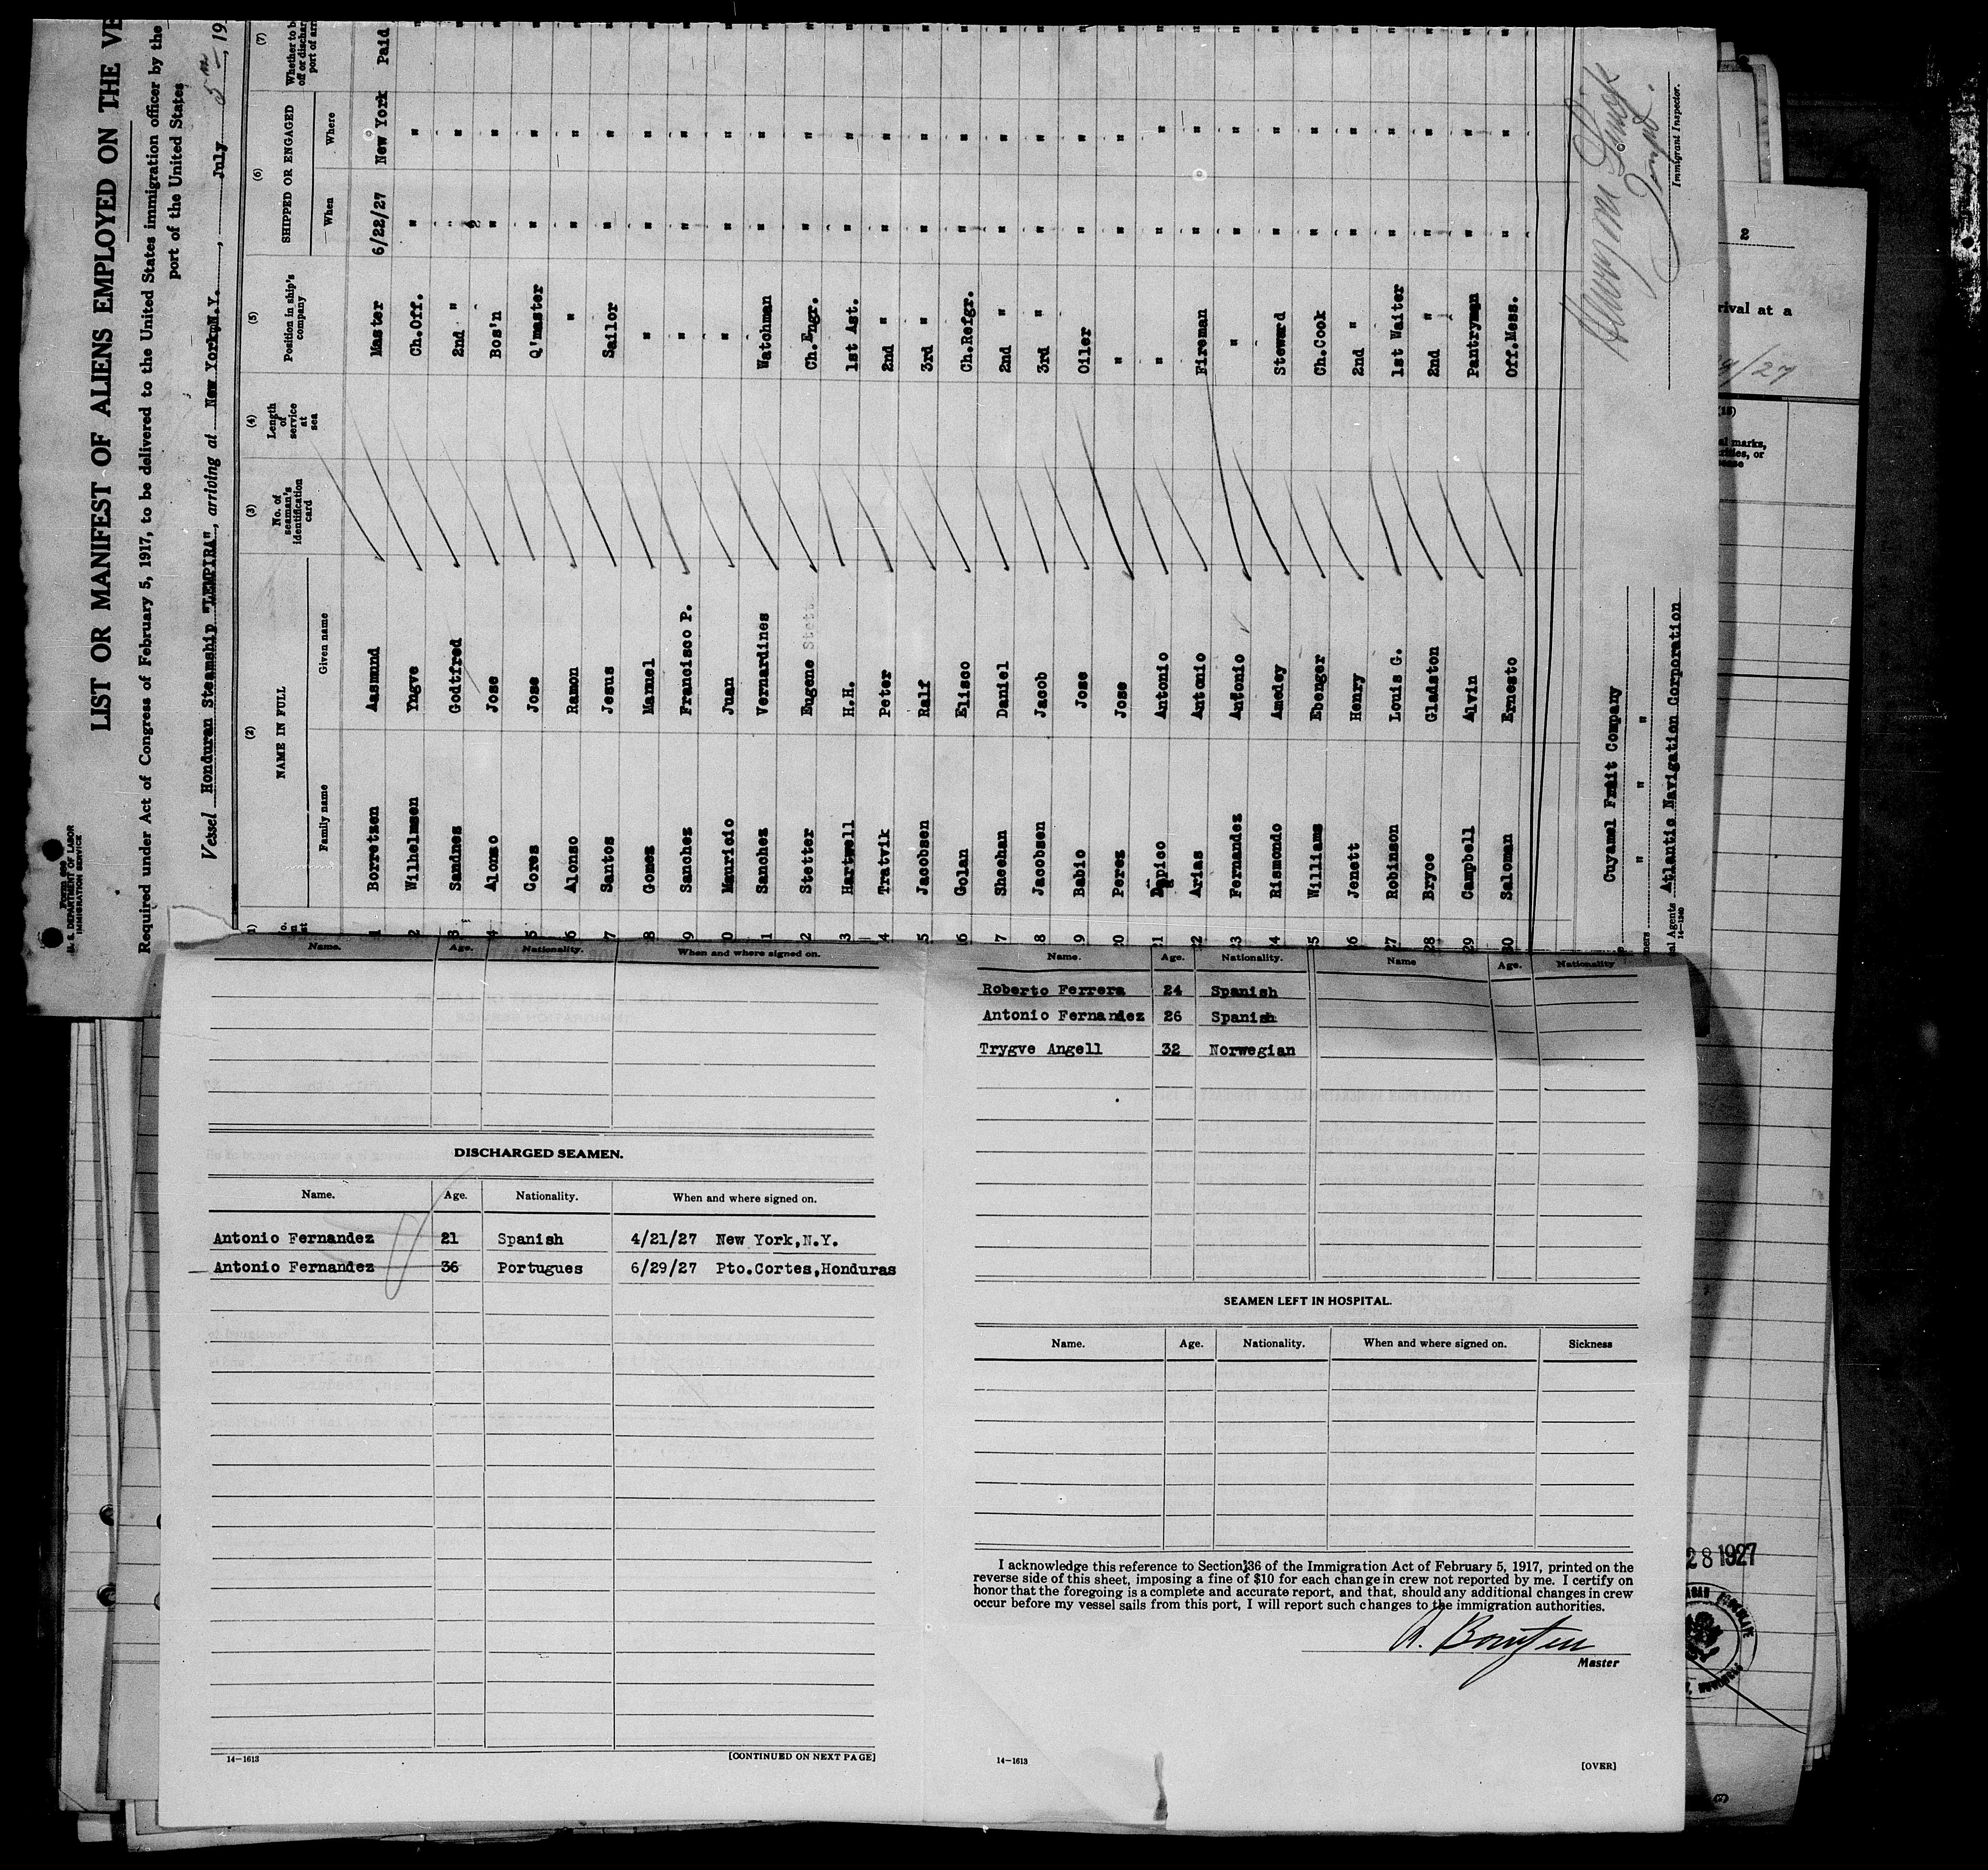 Form 689
U. S. DEPARTMENT OF LABOR
IMMIGRATION SERVICE
LIST OR MANIFEST OF ALIENS EMPLOYED ON THE VE
Required under Act of Congress of February 5, 1917, to be delivered to the United States immigration officer by the
port of the United States
Vessel Honduran Steamship "LEMPIRA", arriving at New York, N.Y., July 5th, 19
(2) (3) (4) (5) (6) (7)
NAME IN FULL No. of seaman's identification card Length of service at sea Position in ship's company SHIPPED OR ENGAGED Whether to be
Family name Given name When Where off or dischar port of arri
1 Borretzen Aasmund Master 6/22/27 New York Paid
2 Wilhelmsen Yngve Ch.Off. " " "
3 Sandnes Godtfred 2nd " " " "
4 Alonso Jose Bos'n " " "
5 Cores Jose Q'master " " "
6 Alonso Ramon " " " "
7 Santos Jesus Sailor " " "
8 Gomez Manuel " " " "
9 Sanchez Francisco P. " " " "
0 Mauricio Juan " " " "
1 Sanchez Vernardines Watchman " " "
2 Stetter Eugene Ch.Engr. " " "
3 Hartwell H.H. 1st Ast. " " "
4 Tratvik Peter 2nd " " " "
5 Jacobsen Ralf 3rd " " " "
6 Golan Elisco Ch.Refgr. " " "
7 Sheehan Daniel 2nd " " " "
8 Jacobsen Jacob 3rd " " " "
9 Babio Jose Oiler " " "
20 Perez Jose " " " "
21 Antonio " " " "
22 Arias Antonio Fireman " " "
23 Fernandez Antonio " " " "
24 Rismondo Amedey Steward " " "
25 Williams Ebenger Ch.Cook " " "
26 Jenett Henry 2nd " " " "
27 Robinson Louis G. 1st Waiter " " "
28 Bryce Gladston 2nd " " " "
29 Campbell Alvin Pantryman " " "
30 Saloman Ernesto Off.Mess. " " "
Cuyamel Fruit Company
" " "
al Agents Atlantic Navigation Corporation
14-1940
Immigrant Inspector.
Name. Age. Nationality. When and where signed on.
DISCHARGED SEAMEN.
Name. Age. Nationality. When and where signed on.
Antonio Fernandez 21 Spanish 4/21/27 New York,N.Y.
Antonio Fernandez 36 Portugues 6/29/27 Pto.Cortes,Honduras
14-1613 [CONTINUED ON NEXT PAGE]
Name. Age. Nationality. Name Age. Nationality
Roberto Ferrera 24 Spanish
Antonio Fernandez 26 Spanish
Trygve Angell 32 Norwegian
SEAMEN LEFT IN HOSPITAL.
Name. Age. Nationality. When and where signed on. Sickness
I acknowledge this reference to Section 36 of the Immigration Act of February 5, 1917, printed on the
reverse side of this sheet, imposing a fine of $10 for each change in crew not reported by me. I certify on
honor that the foregoing is a complete and accurate report, and that, should any additional changes in crew
occur before my vessel sails from this port, I will report such changes to the immigration authorities.
Master
14-1613 [OVER]
2
rival at a
/27
(15)
al marks,
28 1927